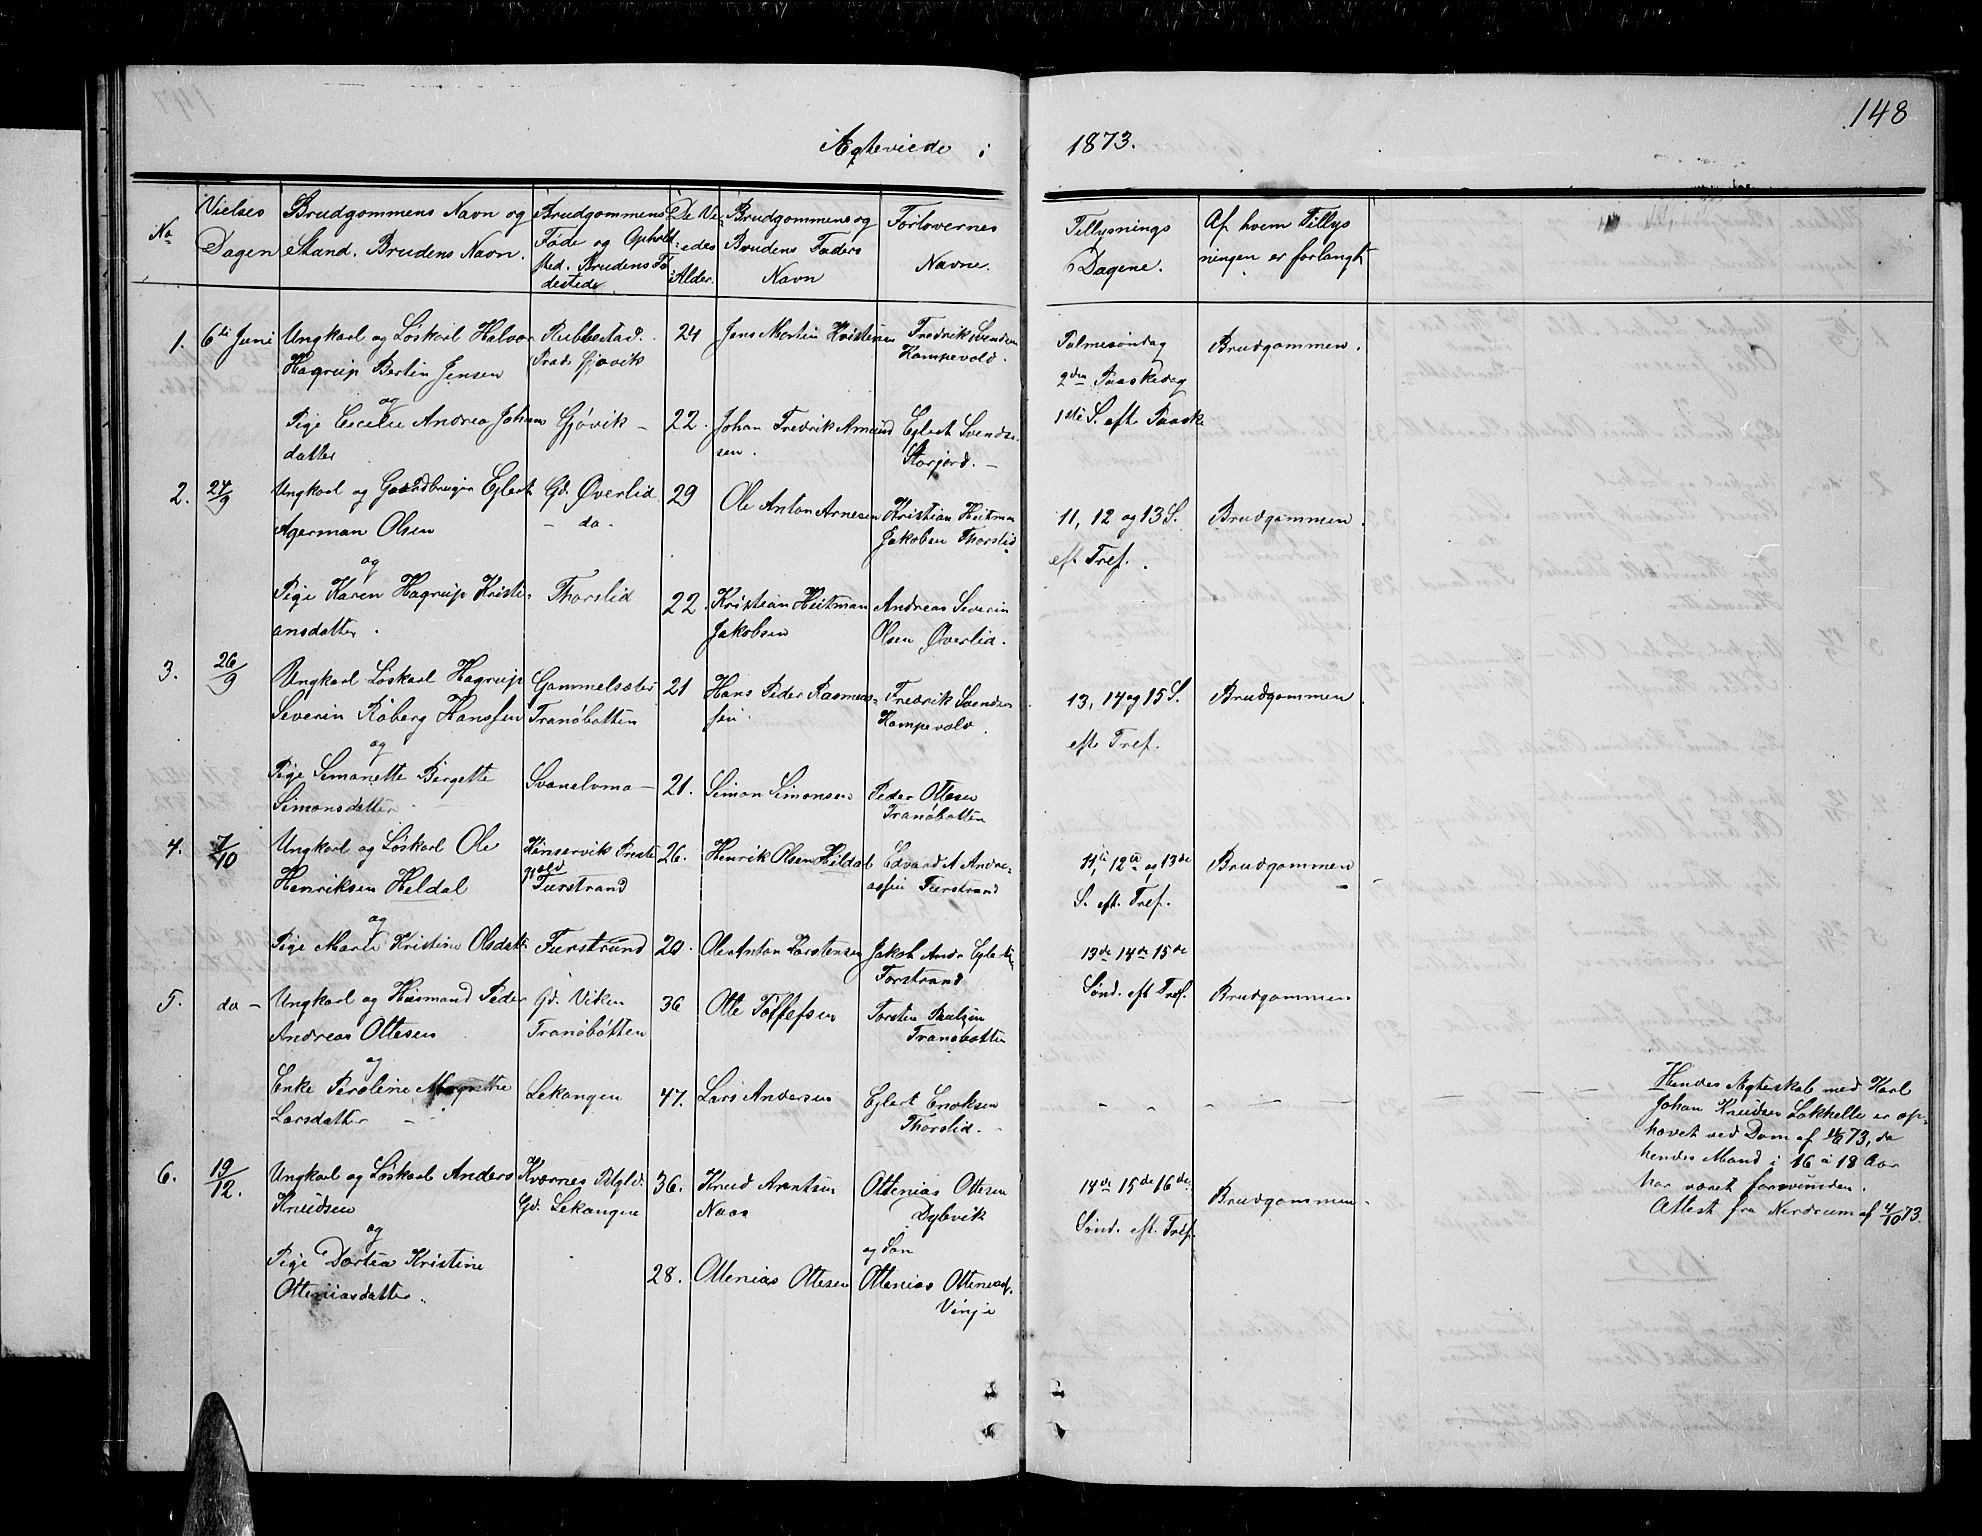 148
Ægteviede i 1873.
No
Vielses Dagen
Brudgommens Navn og Stand. Brudens Navn.
Brudgommens Føde og Opholdsted. Brudens Fødestede
De Viedes Alder.
Brudgommens og Brudens Faders Navn
Forlovernes Navne.
Tillysnings Dagene.
Af hvem Tillysningen er forlangt
1. 6te Juni Ungkarl og Løskarl Halvor Rubbestad. 24 Jens Martin Kristensen Fredrik Svendsen
Hagrup Bertin Jensen Gjøvik Kampevold.
og
Pige Cecilie Andrea Johans Gjøvik - 22. Johan Fredrik Amund Eylert Svends.
datter sen. Storjord. -
Palmesøndag
2den Paaskedag
1ste S. eft Paaske
Brudgommen.
2. 24/9 Ungkarl og Gaardbruger Eylert Gd. Øverlid 29 Ole Anton Arnesen Kristian Heitman
Agerman Olsen - do - Jakobsen Thorslid
og
Pige Karen Hagrup Kristi- Thorslid 22 Kristian Heitman Andreas Severin
ansdatter. Jakobsen Olsen Øverlid.
11, 12 og 13 S.
eft Tref.
Brudgommen.
3. 26/9 Ungkarl Løskarl Hagrup Gammelsæter 21 Hans Peder Rasmus- Fredrik Svendsen
Severin Røberg Hanssen Tranøbotten sen Kampevold.
og
Pige Simonette Bergette Svanelvmo - 21. Simon Simonsen Peder Ottesen
Simonsdatter - Tranøbotten
13, 14 og 15 S.
eft Tref.
Brudgommen
4. 7/10 Ungkarl og Løskarl Ole Kinservik Preste 26. Henrik Olsen Heldal Edvard A Andre-
Henriksen Heldal gjeld Furstrand assen Furstrand
og
Pige Marie Kristine Olsdatt. Furstrand 20. Ole Anton Karstensen Jakob Andr Eylerts
Forstrand
11te, 12te og 13de
S. eft. Tref.
Brudgommen
5. do - Ungkarl og Husmand Peder Gd. Viken 36 Otte Toffefsen Torsten Paulsen
Andreas Ottesen Tranøbotten Tranøbotten
og
Enke Peroline Magrethe Lekangen 47. Lars Andersen Eylert Enoksen
Larsdatter - Thorslid. -
13de 14de 15de
Sønd. eft Tref.
Brudgommen
Hendes Ægteskab med Karl
Johan Knudsen Løkhelle er op-
hævet ved Dom af 73, da
hendes Mand i 16 à 18 Aar
har været forsvunden.
Attest fra Nordrum af 4/10 73.
6. 19/12. Ungkarl og Løskarl Anders Kvernes Pstgld. 36. Knud Arntsen Ottenias Ottesen
Knudsen Gd. Lekangen Naas Dylvik
og og Søn
Pige Dortea Kristine 28. Ottenias Ottesen Ottenias Ottenias.
Otteniasdatter. Vinje
14de 15de 16de
Sønd. eft. Tref.
Brudgommen.